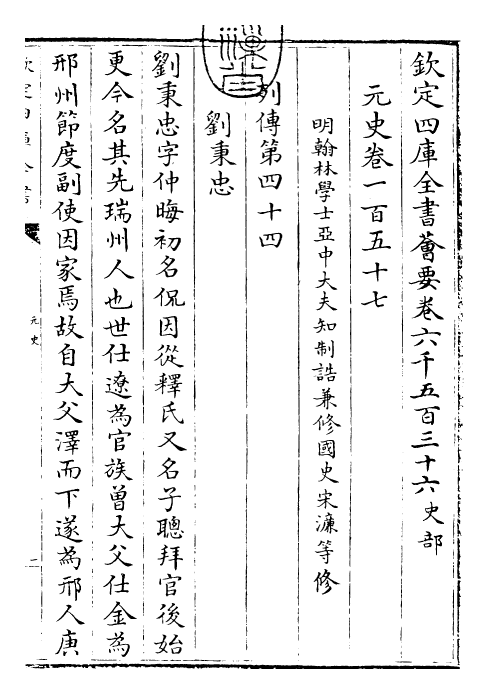 欽定四庫全書薈要卷六千五百三十六史部
元史卷一百五十七
明翰林學士亞中大夫知制誥兼修國史宋濂等修
列傳第四十四
劉秉忠
劉秉忠字仲晦初名侃因從釋氏又名子聰拜官後始
更今名其先瑞州人也世仕遼為官族曾大父仕金為
邢州節度副使因家焉故自大父澤而下遂為邢人庚
元史
二